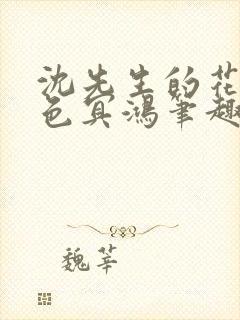 沈先生的花
色冥鴻筆趣
魏莘